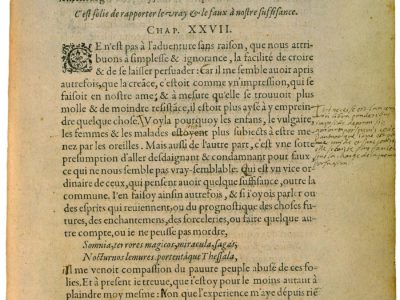 C'est folie de rapporter le vray & le faux à nostre suffisance.
CHAP. XXVII.
CE n'est pas à l'aduenture sans raison, que nous attri
buons à simplesse & ignorance, la facilité de croire
& de se laisser persuader: Car il me semble auoir apris
autrefois, que la creãce, c'estoit comme vn'impression, qui se
faisoit en nostre ame; & à mesure qu'elle se trouuoit plus
molle & de moindre resistãce, il estoit plus aysé à y empreindre
quelque chose. Voyla pourquoy les enfans, le vulgaire,
les femmes & les malades estoyent plus subiects à estre me
nez par les oreilles. Mais aussi de l'autre part, c'est vne sotte
presumption d'aller desdaignant & condamnant pour faux
ce qui ne nous semble pas vray-semblable. Qui est vn vice or
dinaire de ceux, qui pensent auoir quelque suffisance, outre la
commune. I'en faisoy ainsin autrefois, & si i'oyois parler ou
des esprits qui reuiennent, ou du prognostique des choses fu-
tures, des enchantemens, des sorceleries, ou faire quelque au-
tre compte, ou ie ne peusse pas mordre,
Somnia, terrores magicos, miracula, sagas,
Nocturnos lemures, portentáque Thessala,
Il me venoit compassion du pauure peuple abusé de ces fo-
lies. Et à present ie treuue, que i'estoy pour le moins autant à
plaindre moy mesme: Non que l'experience m'aye depuis riẽ